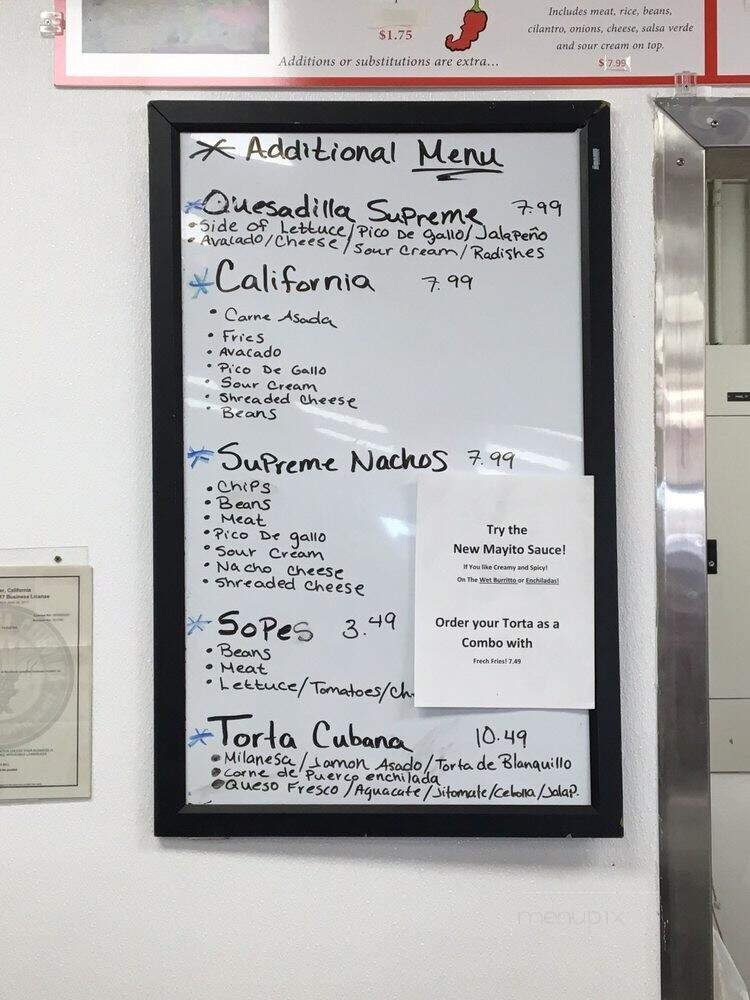 $1.75
Additions or substitutions are extra...
Includes meat, rice, beans,
cilantro, onions, cheese, salsa verde
and sour cream on top.
$7.99
* Additional Menu
* Quesadilla Supreme 7.99
• Side of Lettuce/Pico De gallo/Jalapeño
• Avacado/Cheese/Sour Cream/Radishes
* California 7.99
• Carne Asada
• Fries
• Avacado
• Pico De Gallo
• Sour Cream
• Shreaded Cheese
• Beans
* Supreme Nachos 7.99
• Chips
• Beans
• Meat
• Pico De gallo
• Sour Cream
• Nacho Cheese
• Shreaded Cheese
* Sopes 3.49
• Beans
• Meat
• Lettuce/Tomatoes/Ch
* Torta Cubana 10.49
• Milanesa/Jamon Asado/Torta de Blanquillo
• Carne de Puerco enchilada
• Queso Fresco/Aguacate/Jitomate/Cebolla/Jalap.
Try the
New Mayito Sauce!
If You like Creamy and Spicy!
On The Wet Burritto or Enchiladas!
Order your Torta as a
Combo with
Frech Fries! 7.49
California
Business License
menupix